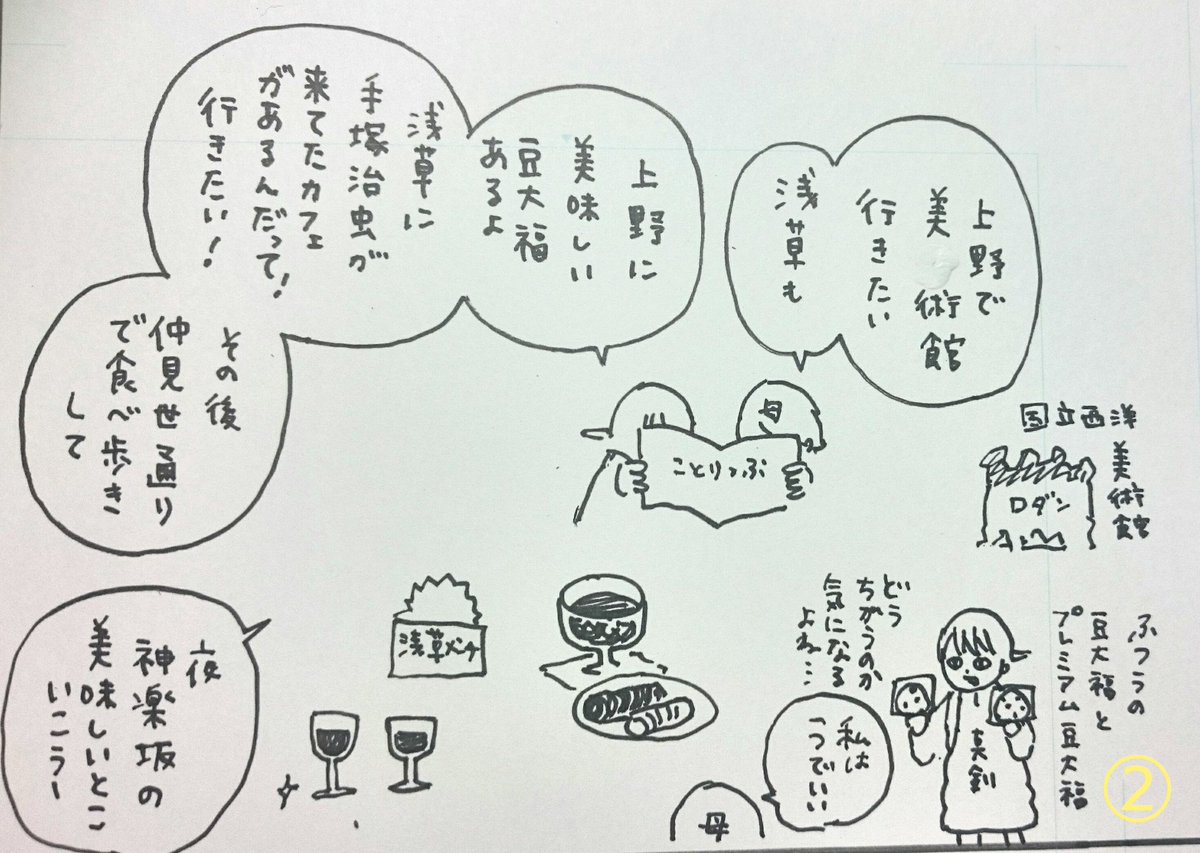 上野で
美術館
行きたい
浅草も
上野に
美味しい
豆大福
あるよ
浅草に
手塚治虫が
来てたカフェ
があるんだって!
行きたい!
その後
仲見世通り
で食べ歩き
して
母
ことりっぷ
国立西洋
美術館
ロダン
ふつうの
豆大福と
プレミアム豆大福
真剣
どう
ちがうのか
気になる
よね…
私は
1つでいい
母
浅草メンチ
夜
神楽坂の
美味しいとこ
いこうー
②